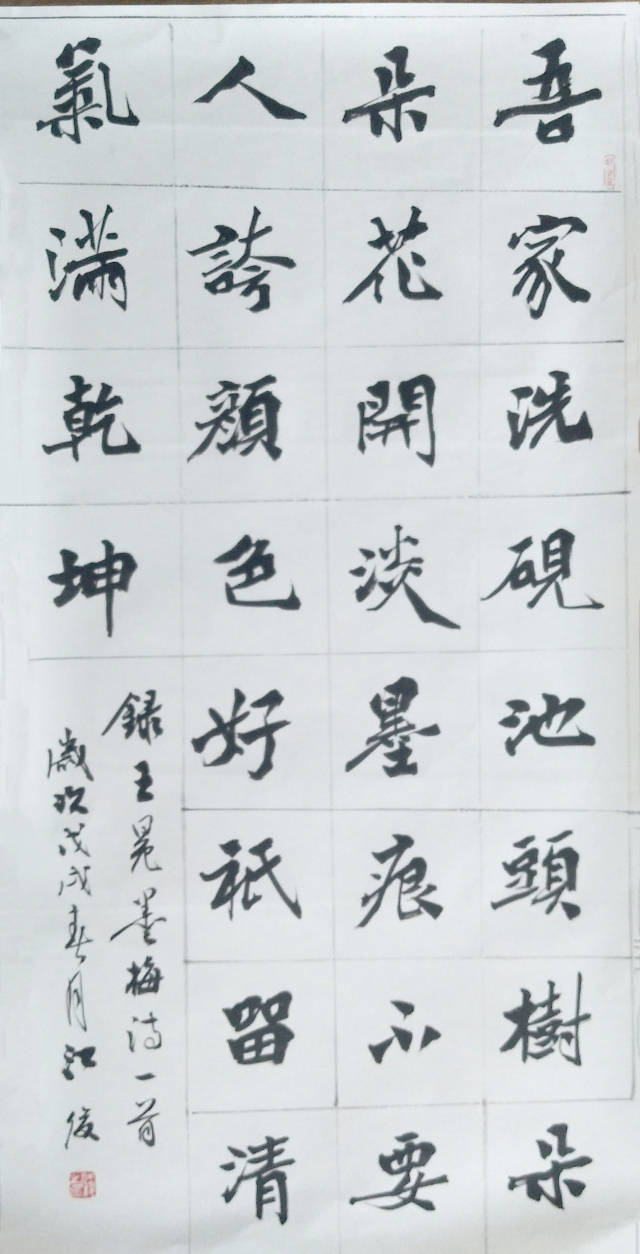 吾家洗硯池頭樹朵
朵花開淡墨痕不要
人誇顏色好祇留清
氣滿乾坤
錄王冕墨梅詩一首
歲次戊戌春月江俊